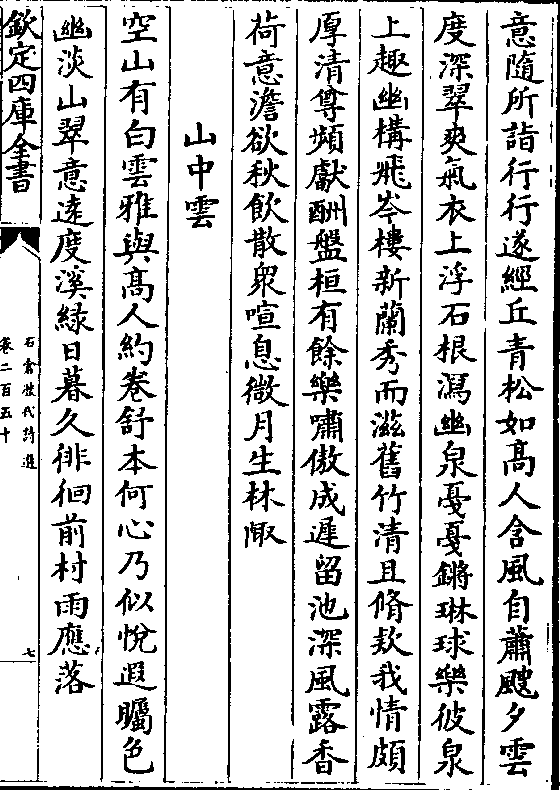 意隨所詣行行遂經丘青松如高人含風自蕭颼夕雲
度深翠爽氣衣上浮石根瀉幽泉戞戞鏘琳球樂彼泉
上趣幽構飛岑樓新蘭秀而滋舊竹清且脩欵我情頗
厚清尊頻獻酬盤桓有餘樂嘯傲成遲留池深風露香
荷意澹欲秋飲散衆喧息微月生林陬
山中雲
空山有白雲雅與高人約卷舒本何心乃似悅遐矚色
幽淡山翠意遠度溪緑日暮久徘徊前村雨應落
欽定四庫全書
石倉歷代詩選
卷二百五十
七